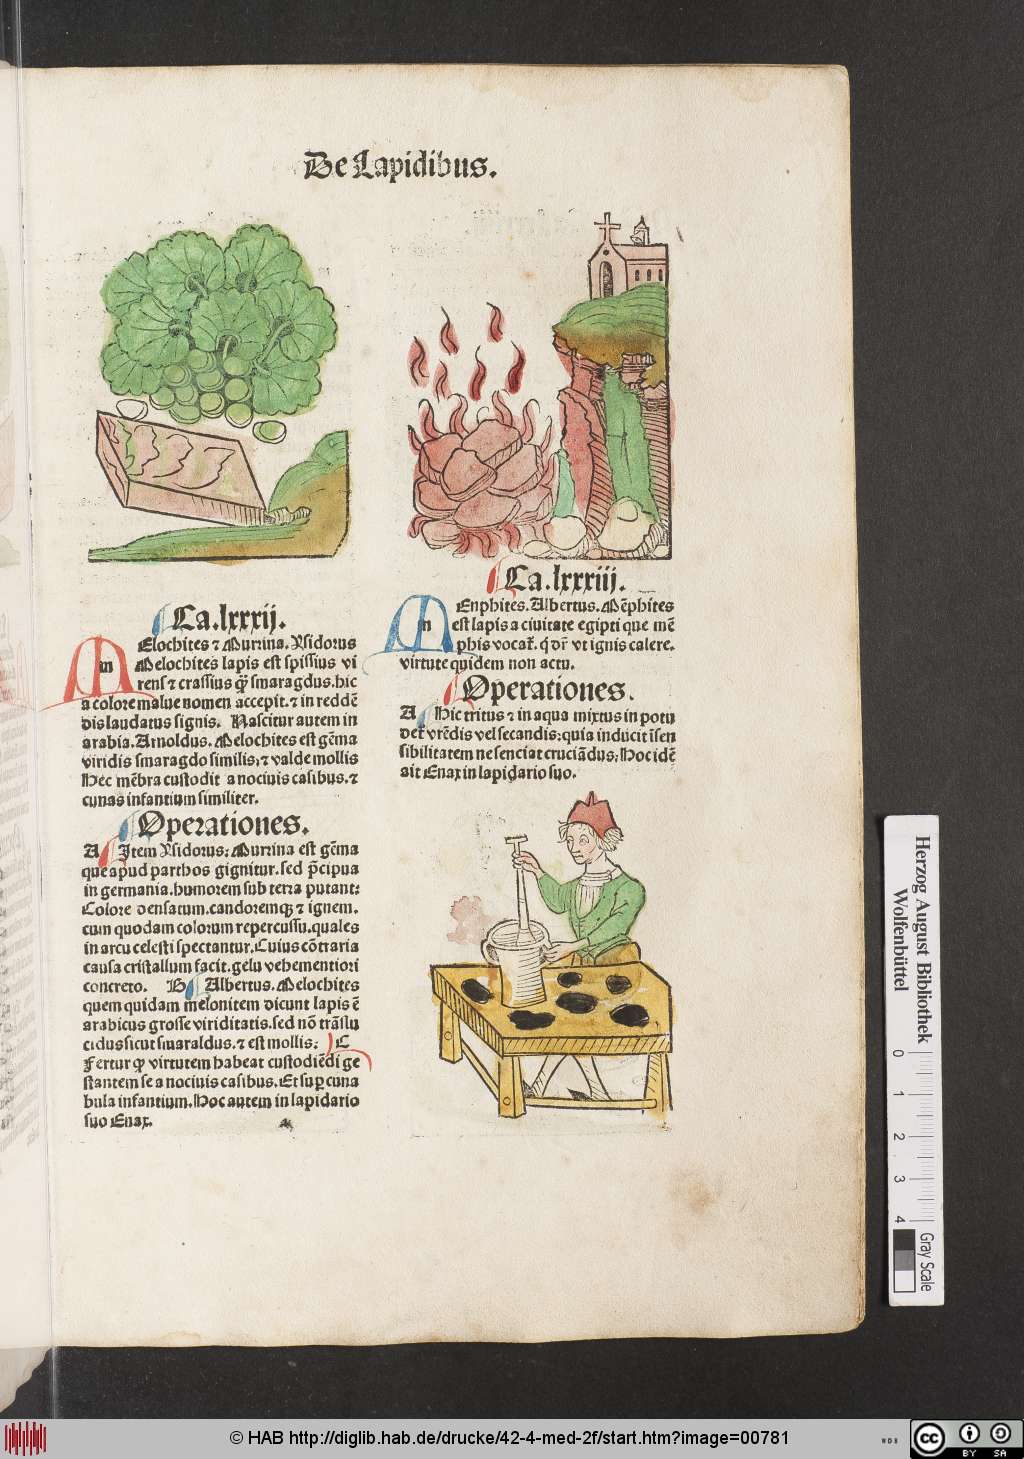 De Lapidibus.
Ca.lxxxij.
MElochites ⁊ Murrina. Ysidorus
m Melochites lapis est spissius vi
rens ⁊ crassius q̄ȝ smaragdus. hic
a colore malue nomen accepit. ⁊ in reddē
dis laudatus signis. Nascitur autem in
arabia. Arnoldus. Melochites est gēma
viridis smaragdo similis, ⁊ valde mollis
Hec mēbra custodit a nociuis casibus. ⁊
cunas infantium similiter.
Operationes.
A Item Ysidorus: Murrina est gēma
que apud parthos gignitur. sed p̄cipua
in germania. humorem sub terra putant:
Colore densatum. candoremqȝ ⁊ ignem.
cum quodam colorum repercussu. quales
in arcu celesti spectantur. Cuius cōtraria
causa cristallum facit. gelu vehementiori
concreto. B Albertus. Melochites
quem quidam melonitem dicunt lapis ē
arabicus grosse viriditatis. sed nō trāslu
cidus sicut smaraldus. ⁊ est mollis: C
Fertur ꝙ virtutem habeat custodiēdi ge
stantem se a nociuis casibus. Et suꝑ cuna
bula infantium. Hoc autem in lapidario
suo Enax.
Ca.lxxxiij.
MEnphites. Albertus. Mēphites
m est lapis a ciuitate egipti que mē
phis vocat᷑. q̇ dr̄ vt ignis calere.
virtute quidem non actu.
Operationes.
A Hic tritus ⁊ in aqua mixtus in potu
det᷑ vrēdis vel secandis: quia inducit īsen
sibilitatem ne senciat cruciādus: Hoc idē
ait Enax in lapidario suo.
Herzog August Bibliothek
Wolfenbüttel
0 1 2 3 4
Gray Scale
© HAB http://diglib.hab.de/drucke/42-4-med-2f/start.htm?image=00781
WDB
cc BY SA